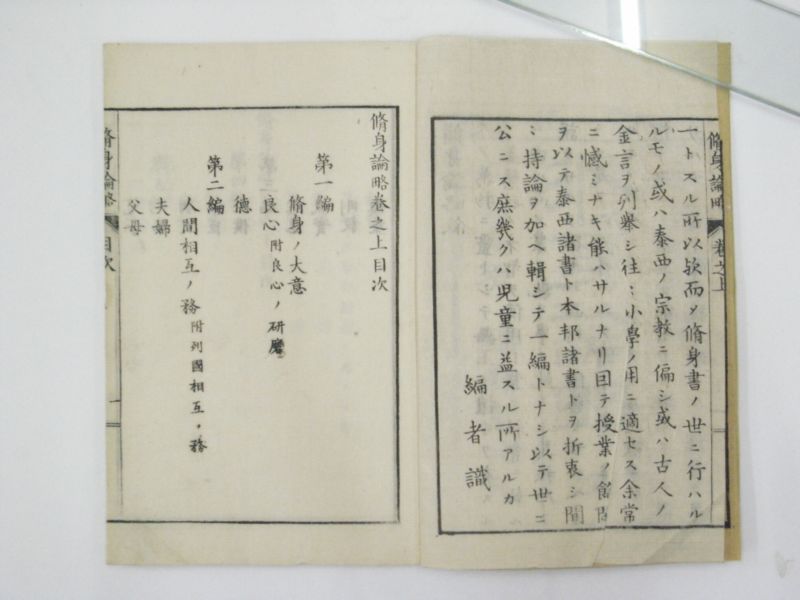 脩身論略 卷之上
一トスル所以歟而〆脩身書ノ世ニ行ハル
ルモノ或ハ泰西ノ宗教ニ偏シ或ハ古人ノ
金言ヲ列擧シ往ミ小學ノ用ニ適セス余常
ニ憾ミナキ能ハサルナリ因テ授業ノ餘間
ヲ以テ泰西諸書ト本邦諸書トヲ折衷シ間
ミ持論ヲ加ヘ輯シテ一編トナシ以テ世ニ
公ニス庶幾クハ児童ニ益スル所アルカ
編者識
脩身論略卷之上目次
第一編
脩身ノ大意
良心附良心ノ研磨
德
第二編
人間相互ノ務附列國相互ノ務
夫婦
父母
脩身論略 目次